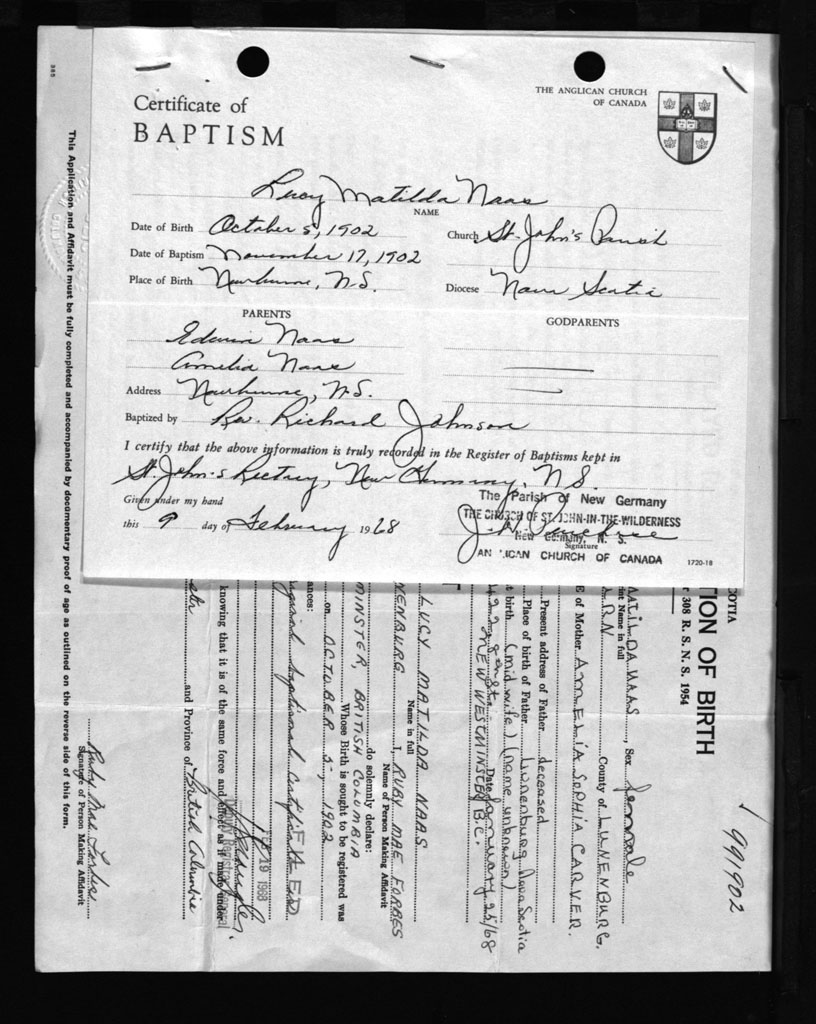 THE ANGLICAN CHURCH
OF CANADA
Certificate of
BAPTISM
Lucy Matilda Naas
NAME
Date of Birth October 5, 1902
Church St. John's Parish
Date of Baptism November 17, 1902
Place of Birth N.S.
Diocese Nova Scotia
PARENTS
GODPARENTS
Edwin Naas
Amelia Naas
Address N.S.
Baptized by Rev. Richard Johnson
I certify that the above information is truly recorded in the Register of Baptisms kept in
St. John's Rectory, New Germany, N.S.
Given under my hand
this 9 day of February 1968
The Parish of New Germany
THE CHURCH OF ST. JOHN-IN-THE-WILDERNESS
New Germany, N. S.
Signature
AN ICAN CHURCH OF CANADA
1720-18
COTIA
TION OF BIRTH
308 R. S. N. S. 1954
1991902
MATILDA NAAS, Sex Female
int Name in full
County of LUNENBURG.
E of Mother AMELIA SOPHIA CARVER.
Present address of Father deceased
Place of birth of Father Lunenburg Nova Scotia
t birth (midwife) (name unknown)
Date January 25/68
NEW WESTMINSTER B.C.
LUCY MATILDA NAAS
Name in full
NENBURG I, RUBY MAE FORBES
Name of Person Making Affidavit
MINSTER, BRITISH COLUMBIA
do solemnly declare:
Whose Birth is sought to be registered was
on OCTOBER 5, 1902
ances:
baptismal certificate
FEB 19 1968
knowing that it is of the same force and effect as if made under
and Province of British Columbia
Ruby Mae Forbes
Signature of Person Making Affidavit
This Application and Affidavit must be fully completed and accompanied by documentary proof of age as outlined on the reverse side of this form.